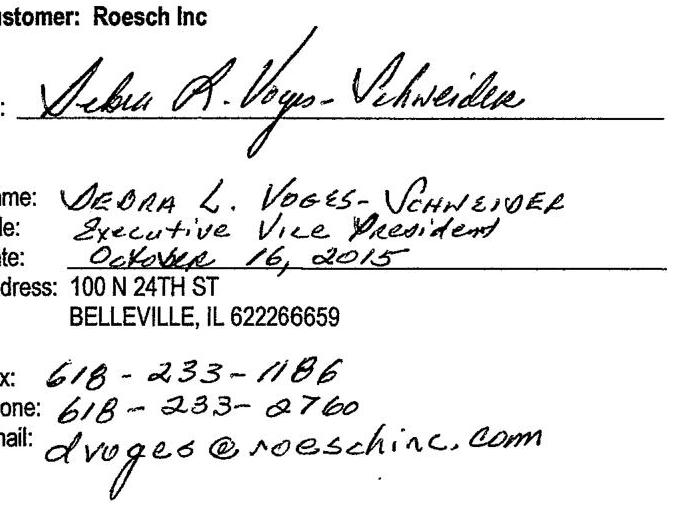 ustomer: Roesch Inc
: Debra L. Voges-Schneider
ame: DEBRA L. VOGES-SCHNEIDER
le: Executive Vice President
te: October 16, 2015
dress: 100 N 24TH ST
BELLEVILLE, IL 622266659
x: 618-233-1186
one: 618-233-2760
nail: dvoges@roeschinc.com